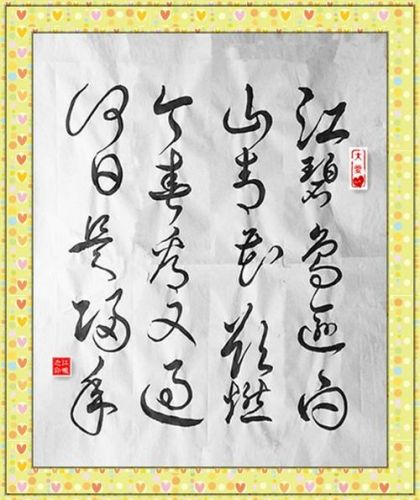 江碧鸟逾白
山青花欲燃
今春看又过
何日是归年
大愛